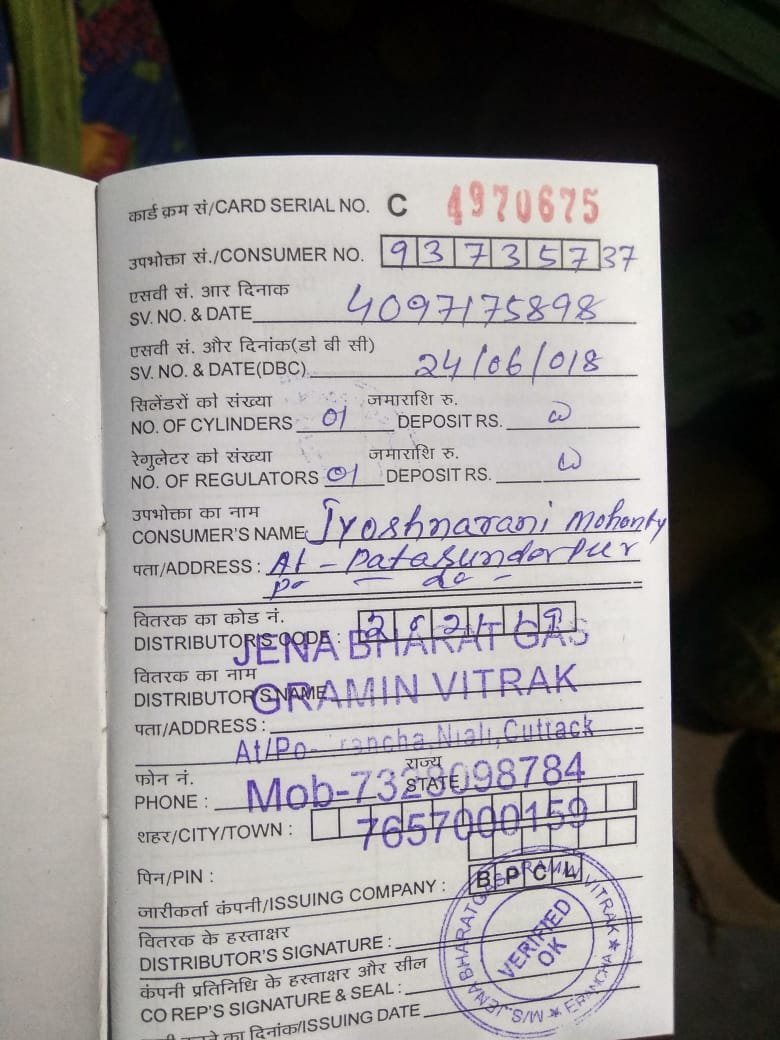 कार्ड क्रम सं/CARD SERIAL NO. C 4970675
उपभोक्ता सं./CONSUMER NO. 937357 37
एसवी सं. आर दिनाक
SV. NO. & DATE 4097175898
एसवी सं. और दिनांक(डी बी सी)
SV. NO. & DATE(DBC) 24/06/018
सिलेंडरों को संख्या जमाराशि रु.
NO. OF CYLINDERS 01 DEPOSIT RS.
रेगुलेटर को संख्या जमाराशि रु.
NO. OF REGULATORS 01 DEPOSIT RS.
उपभोक्ता का नाम
CONSUMER'S NAME: Jyoshnarani Mohanty
पता/ADDRESS : At - Patasundarpur
Po - do -
वितरक का कोड नं.
DISTRIBUTOR'S CODE :
JENA BHARAT GAS
वितरक का नाम
DISTRIBUTOR'S NAME
GRAMIN VITRAK
पता/ADDRESS :
At/Po- Niali, Cuttack
फोन नं. राज्य
PHONE : STATE
Mob-7328098784
शहर/CITY/TOWN :
7657000159
पिन/PIN :
जारीकर्ता कंपनी/ISSUING COMPANY : BPCL
वितरक के हस्ताक्षर
DISTRIBUTOR'S SIGNATURE :
कंपनी प्रतिनिधि के हस्ताक्षर और सील
CO REP'S SIGNATURE & SEAL :
का दिनांक/ISSUING DATE
M/S. JENA BHARATGAS GRAMIN VITRAK ★ ERANCHA ★
VERIFIED
OK